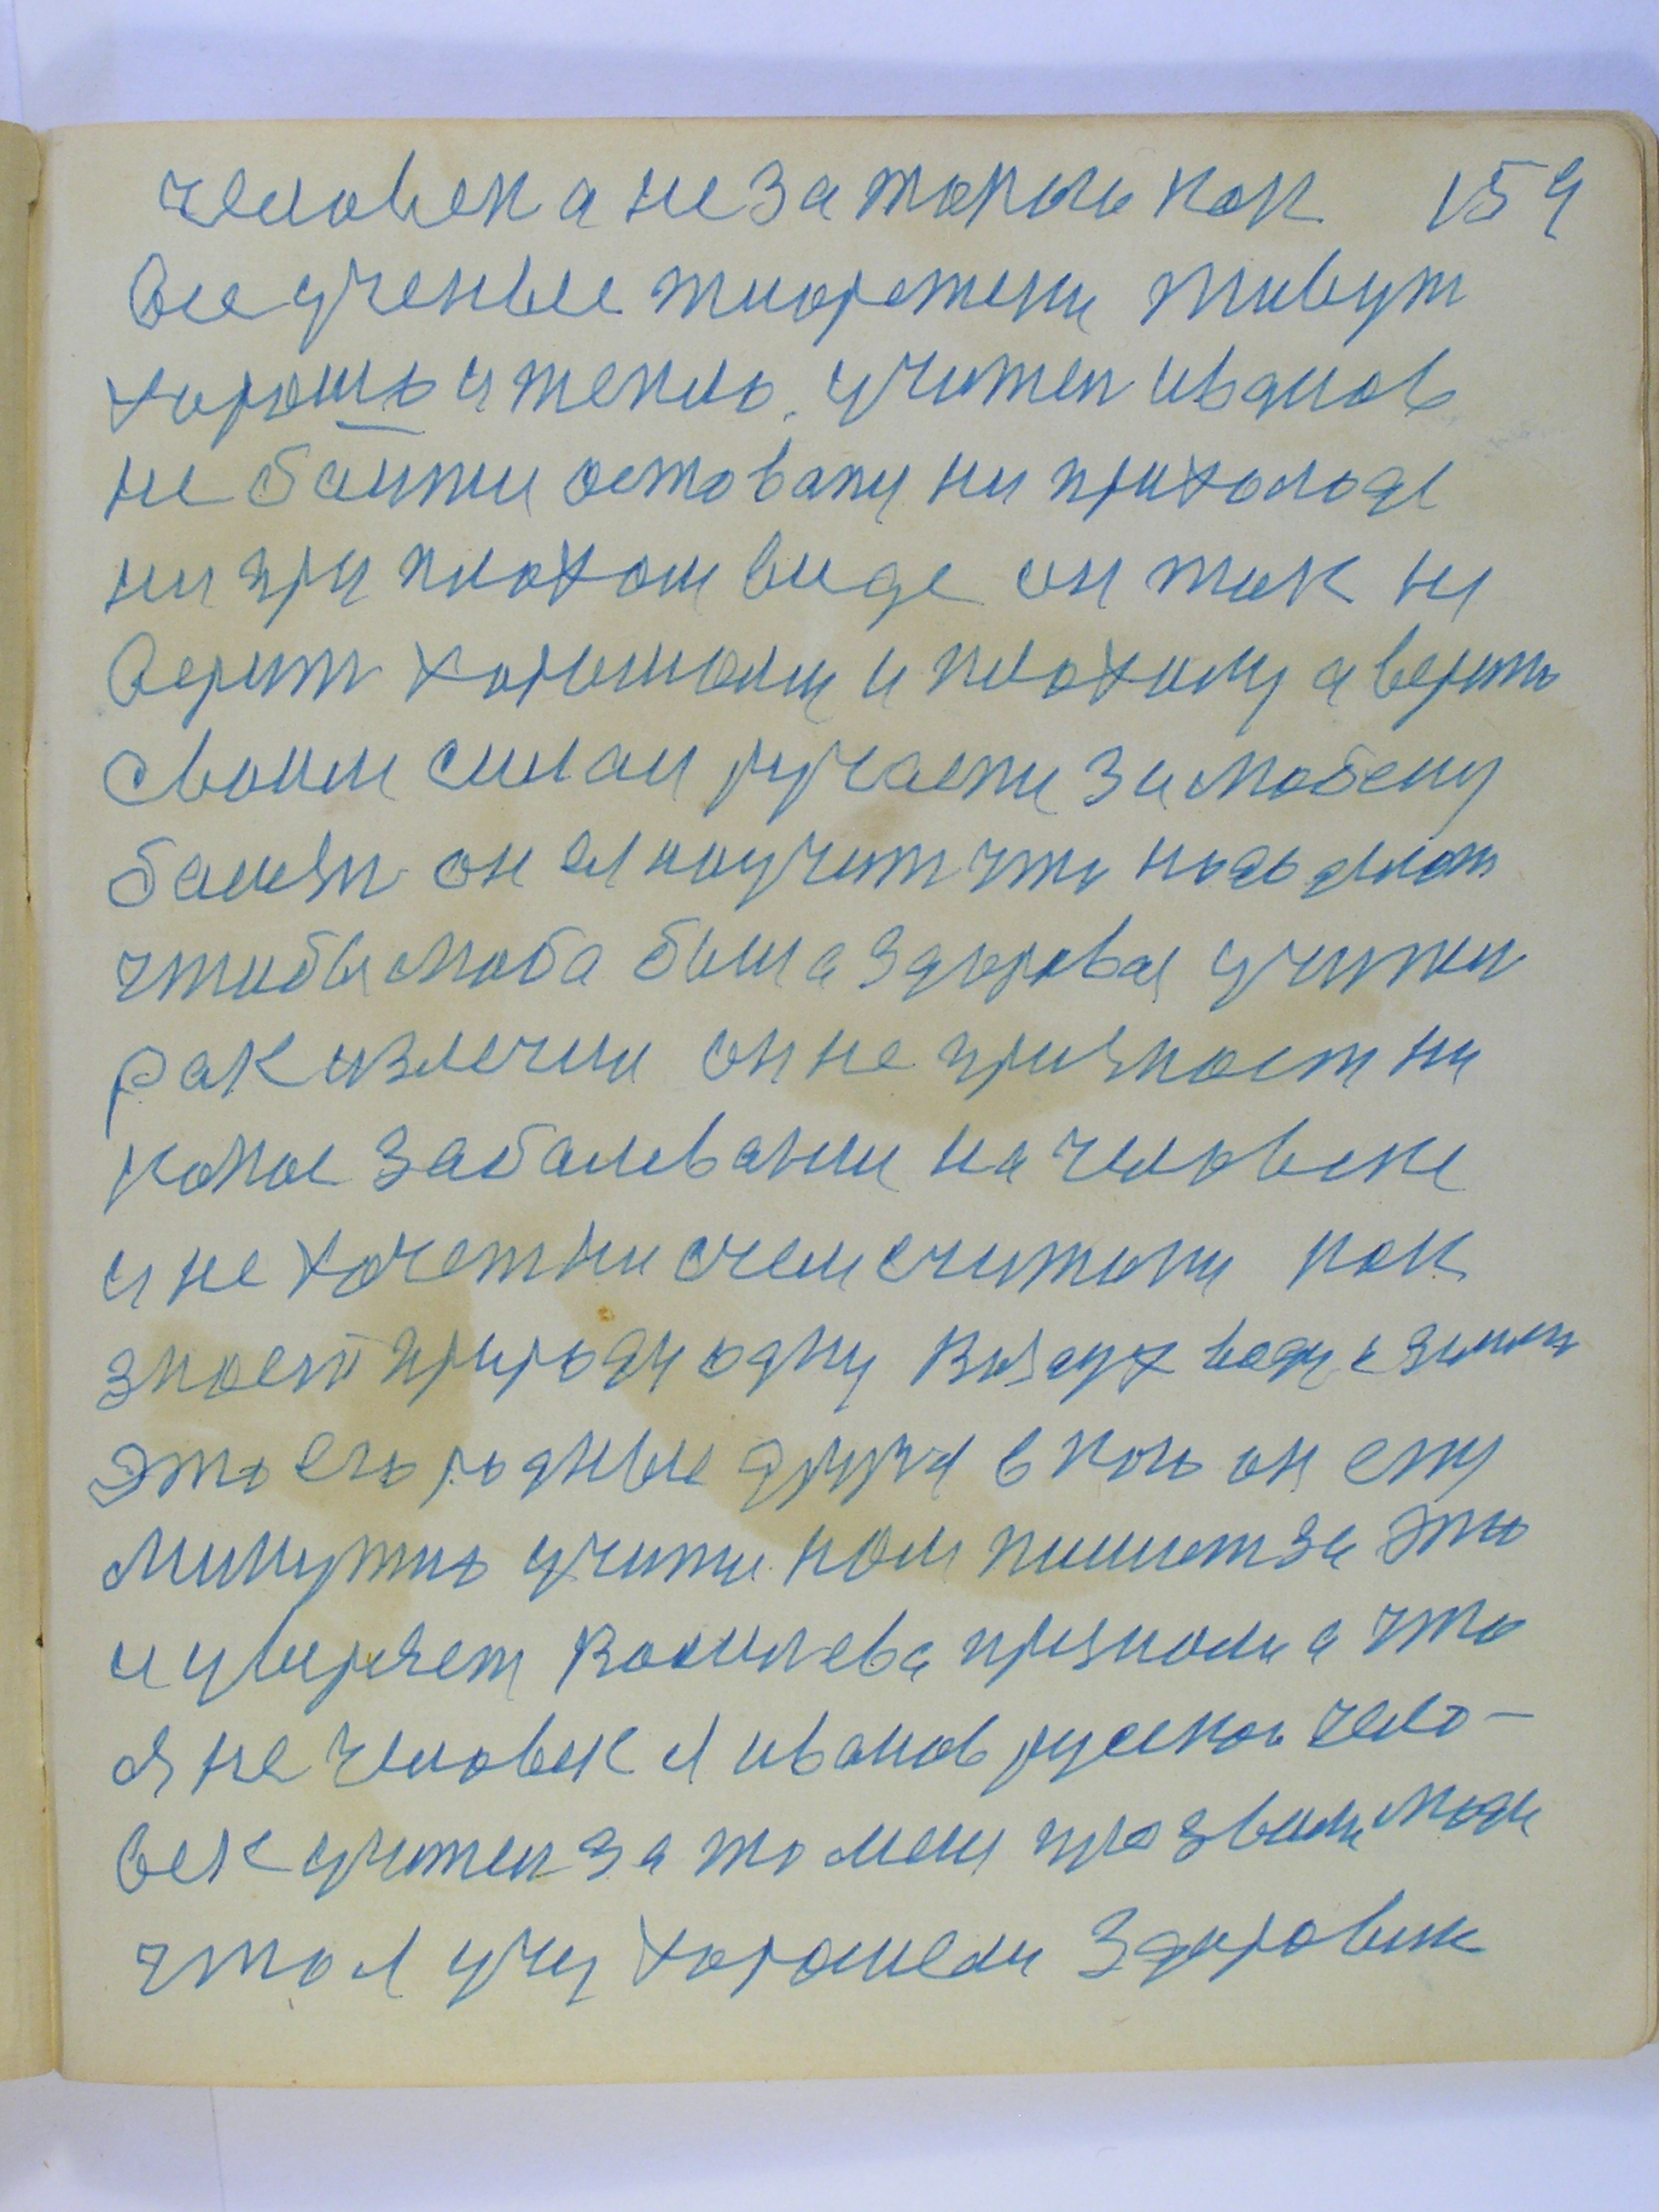 человека не за токого как 159
все ученые теоретики живут
хорошо и тепло. учител иванов
не баитти оставату ни прихолоде
ни при плохом виде он так ни
верит хорошому и плохому а верить
своим силам ручаети за любову
балезн он ел научит что надо делать
чтобы люба была здоровая учител
рак излечил он не признает ни
какое забалевание на человеке
и не хочет ни счем считати как
знает природу одну воздух воду и землю
это его родные друзя в кого он ему
минутно учити ком пишет за это
и уверяет Васильева признали а что
я не человек я иванов руской чело-
век учител за то меня прозвали люди
что я учу хорошели здоровик